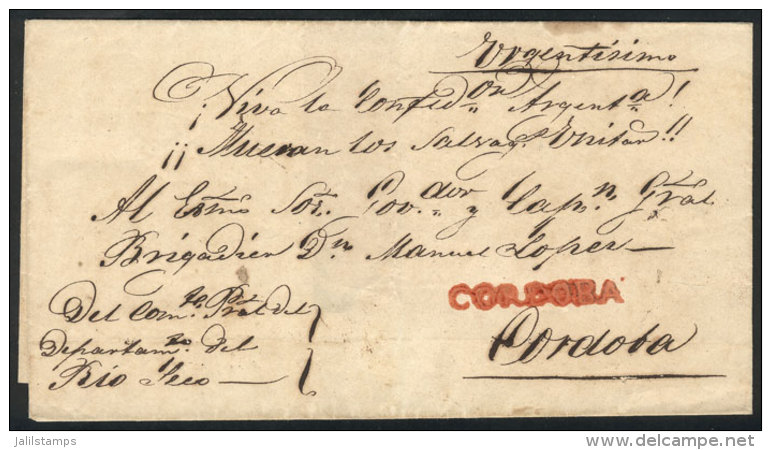 Urgentísimo
¡Viva la Confedon Argenta!
¡¡Mueran los Salvag. Unitar.!!
Al Exmo Sor. Govdor y Capn. Gral
Brigadier Dn Manuel Lopez
CORDOBA
Del Comte Pral del
Departamto del
Río Seco
Cordoba
jalilstamps
delcampe.net